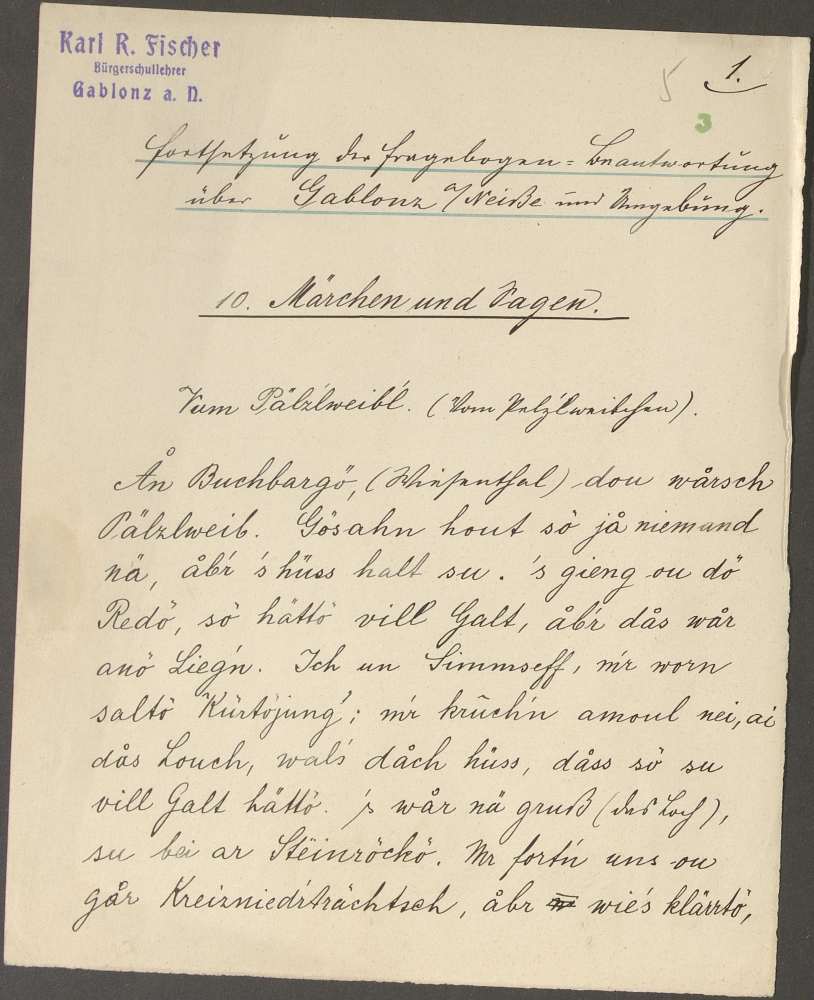 Karl R. Fischer
Bürgerschullehrer
Gablonz a. N.
5
1.
3
Fortsetzung der Fragebogen=Beantwortung
über Gablonz a/Neiße und Umgebung.
10. Märchen und Sagen.
Vum Pälzlweib'l. (Vom Pelzlweibchen).
Ån Buchbargö, (Wiesenthal) dou wårsch
Pälzlweib. Gösahn hout sö jå niemand
nä, åb'r 's hüss halt su. 's gieng ou dö
Redö, sö hättö vill Galt, åb'r dås wår
anö Lieg'n. Ich un Simmseff, m'r worn
saltö Kürtöjung'; m'r krûch'n amoul nei, ai
dås Louch, wal's dåch hüss, dåss sö su
vill Galt hättö. 's wår nä gruß (das Loch),
su bei ar Stëinröckö. Mr fort'n uns ou
går Kreizniedrträchtsch, åbr wie's klärrtö,